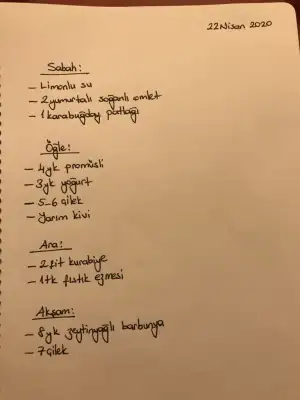 22 Nisan 2020
Sabah:
- Limonlu su
- 2 yumurtalı soğanlı omlet
- 1 karabuğday patlağı
Öğle:
- 4 yk promüsli
- 3 yk yoğurt
- 5-6 çilek
- Yarım kivi
Ara:
- 2 fit kurabiye
- 1 tk fıstık ezmesi
Akşam:
- 8 yk zeytinyağlı barbunya
- 7 çilek